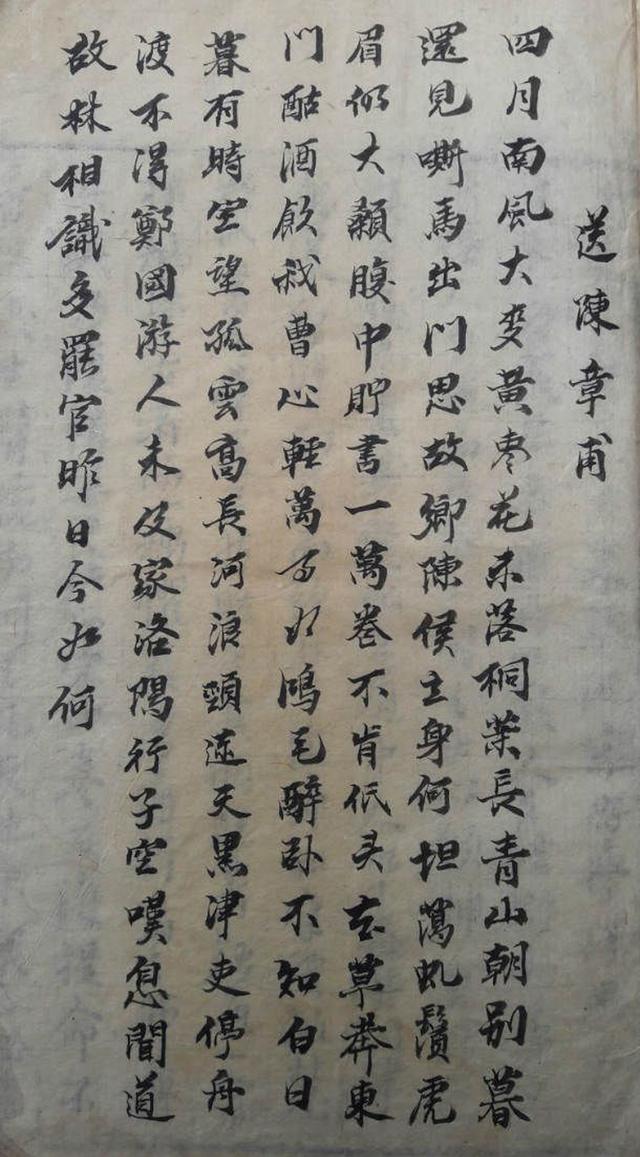 送陳章甫
四月南風大麥黃枣花未落桐葉長青山朝别暮
還見嘶馬出門思故鄉陳侯立身何坦蕩虬鬚虎
眉仍大顙腹中貯書一萬卷不肯低头在草莽東
門酤酒飲我曹心輕萬事如鴻毛醉卧不知白日
暮有時空望孤雲高長河浪頭連天黑津吏停舟
渡不得鄭國游人未及家洛陽行子空嘆息聞道
故林相識多罷官昨日今如何